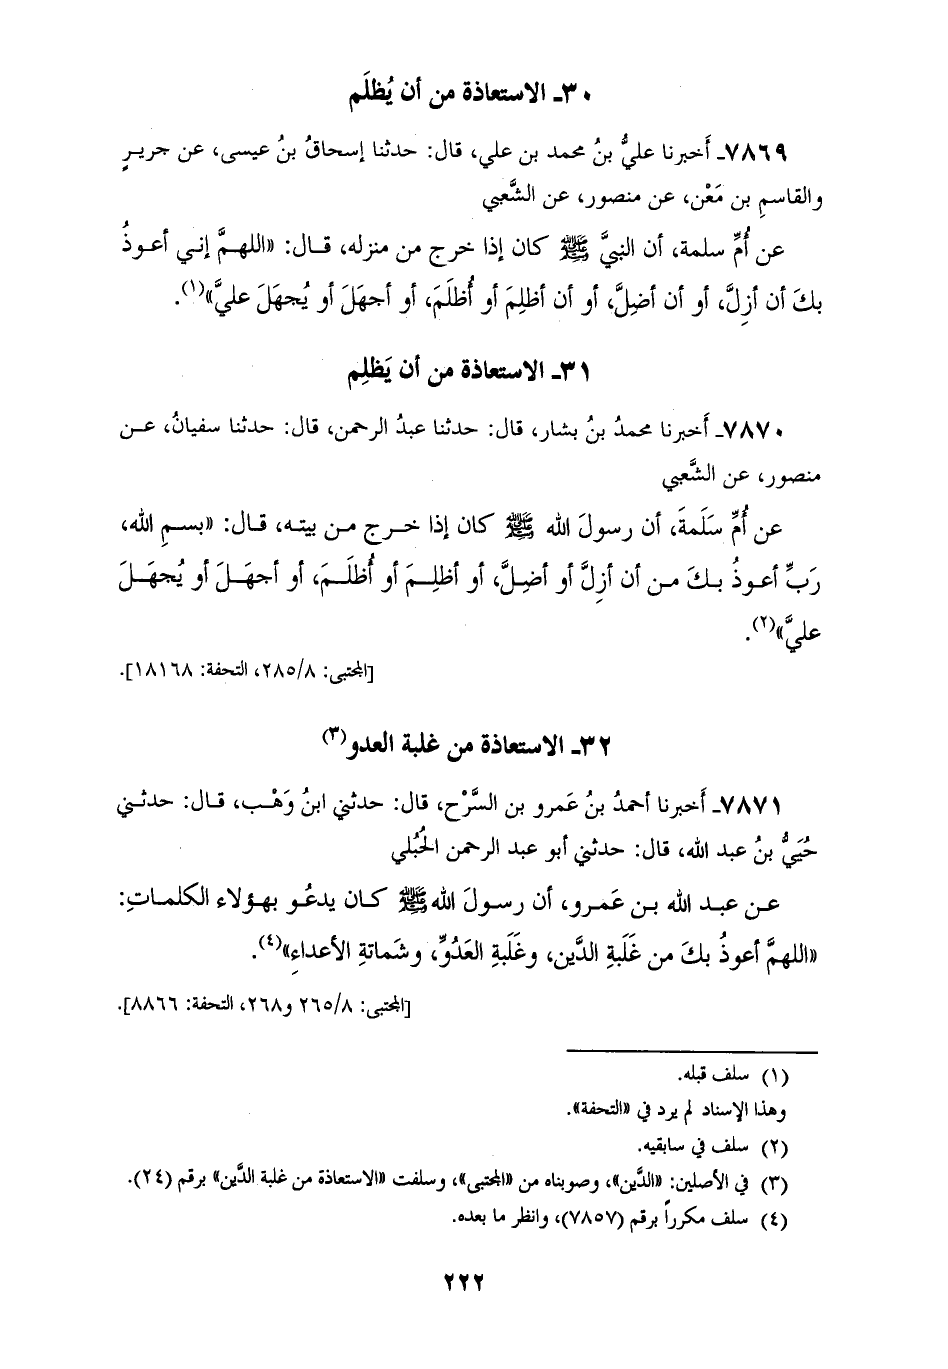 ٣٠ـ الاستعاذة من أن يُظلَم
٧٨٦٩ـ أَخبرنا عليُّ بنُ محمد بن علي، قال: حدثنا إسحاقُ بنُ عيسى، عن جريرٍ
والقاسمِ بن مَعْن، عن منصور، عن الشَّعبي
عن أُمِّ سلمة، أن النبيَّ ﷺ كان إذا خرج من منزله، قـال: «اللهمَّ إنـي أعـوذُ
بكَ أن أزِلَّ، أو أن أضِلَّ، أو أن أظلِمَ أو أُظلَمَ، أو أجهَلَ أو يُجهَلَ عليَّ»(١).
٣١ـ الاستعاذة من أن يَظلِم
٧٨٧٠ـ أَخبرنا محمدُ بنُ بشار، قال: حدثنا عبدُ الرحمن، قال: حدثنا سفيانُ، عـن
منصور، عن الشَّعبي
عن أُمِّ سَلَمةَ، أن رسولَ الله ﷺ كان إذا خـرج مـن بيتـه، قـال: «بسـمِ الله،
رَبِّ أعـوذُ بـكَ مـن أن أزِلَّ أو أضِـلَّ، أو أظلِـمَ أو أُظلَـمَ، أو أجهَـلَ أو يُجهَـلَ
عليَّ»(٢).
[المجتبى: ٢٨٥/٨، التحفة: ١٨١٦٨].
٣٢ـ الاستعاذة من غلبة العدو(٣)
٧٨٧١ـ أَخبرنا أحمدُ بنُ عَمرو بن السَّرْح، قال: حدثني ابنُ وَهْـب، قـال: حدثـني
حُيَيُّ بنُ عبد الله، قال: حدثني أبو عبد الرحمن الحُبُلي
عـن عبـد الله بـن عَمـرو، أن رسـولَ الله ﷺ كـان يدعُـو بهـؤلاء الكلمـاتِ:
«اللهمَّ أعوذُ بكَ من غَلَبةِ الدَّين، وغَلَبةِ العَدُوِّ، وشَماتةِ الأعداءِ»(٤).
[المجتبى: ٢٦٥/٨ و٢٦٨، التحفة: ٨٨٦٦].
(١) سلف قبله.
وهذا الإسناد لم يرد في «التحفة».
(٢) سلف في سابقيه.
(٣) في الأصلين: «الدَّين»، وصوبناه من «المجتبى»، وسلفت «الاستعاذة من غلبة الدَّين» برقم (٢٤).
(٤) سلف مكرراً برقم (٧٨٥٧)، وانظر ما بعده.
٢٢٢